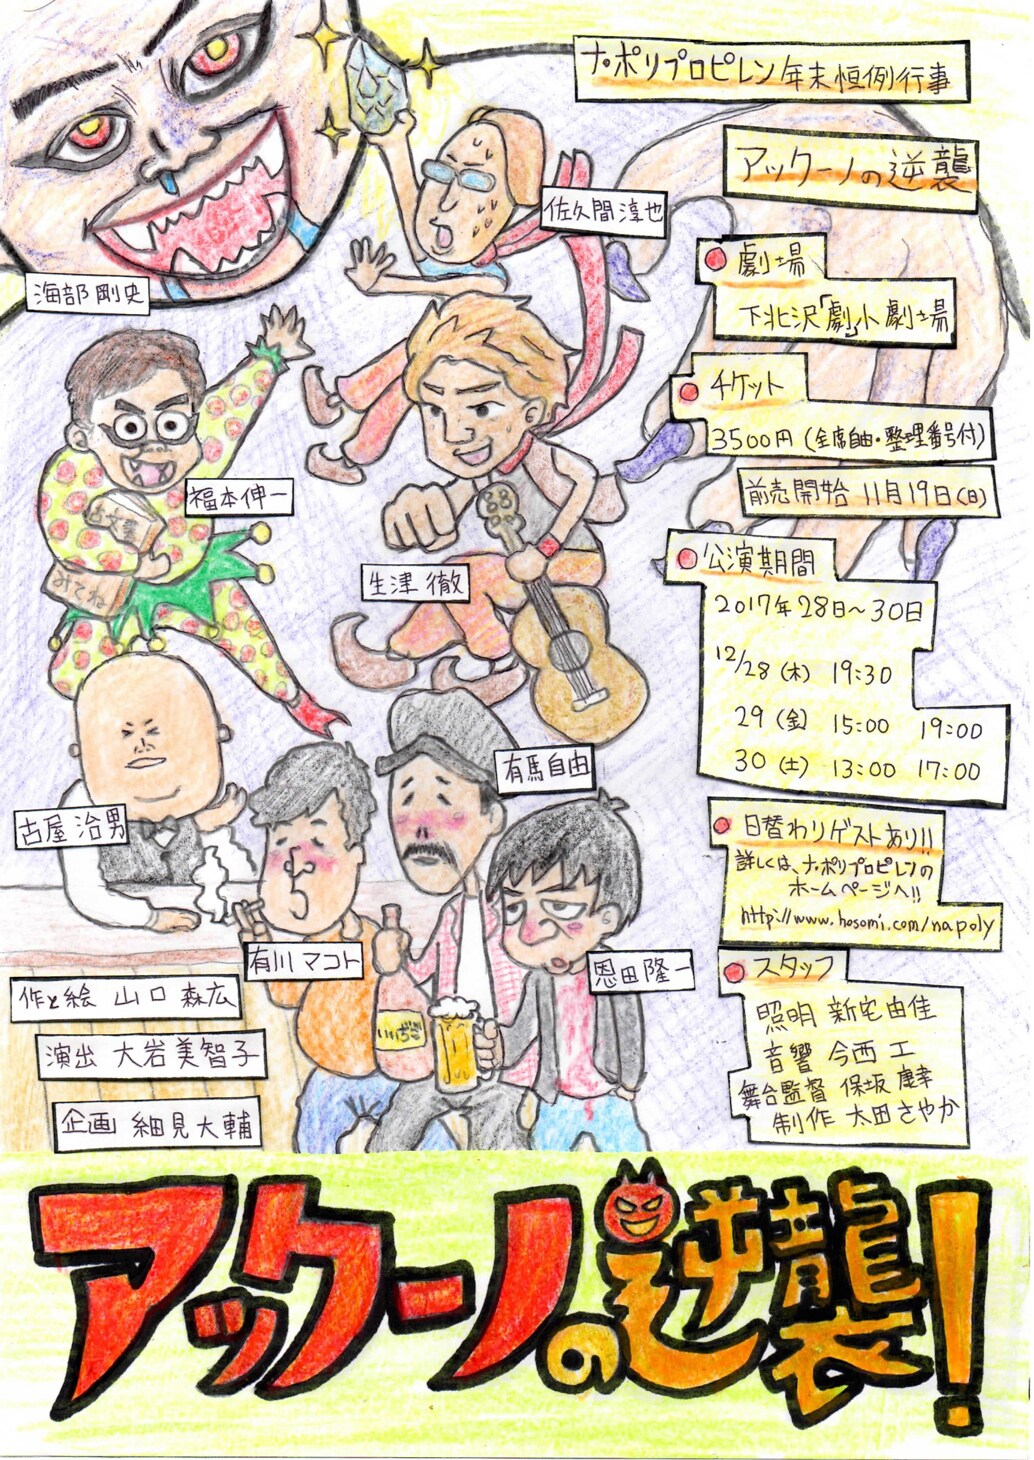 ナ・ポリプロピレン年末恒例行事
アックーノの逆襲
劇場
下北沢「劇」小劇場
チケット
3500円(全席自由・整理番号付)
前売開始 11月19日(日)
公演期間
2017年28日〜30日
12/28(木) 19:30
29(金) 15:00 19:00
30(土) 13:00 17:00
日替わりゲストあり!!
詳しくは、ナ・ポリプロピレンの
ホームページへ!!
http://www.hosomi.com/napoly
スタッフ
照明 新宅由佳
音響 今西工
舞台監督 保坂康幸
制作 太田さやか
佐久間淳也
海部剛史
福本伸一
古文書
みてね
生津徹
有馬自由
古屋治男
有川マコト
恩田隆一
いいちこ
作と絵 山口森広
演出 大岩美智子
企画 細見大輔
アックーノの逆襲!